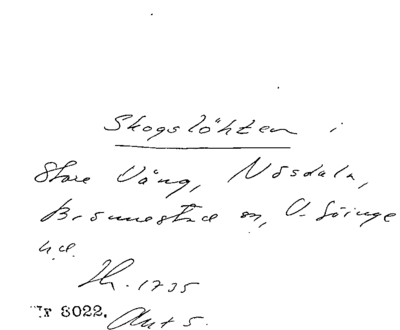 Skogslöhten i
Stare Vång, Nösdala,
Brönnestad sn, V. Göinge
h.d.
Th. 1735
Nr 8022. Akt 5.